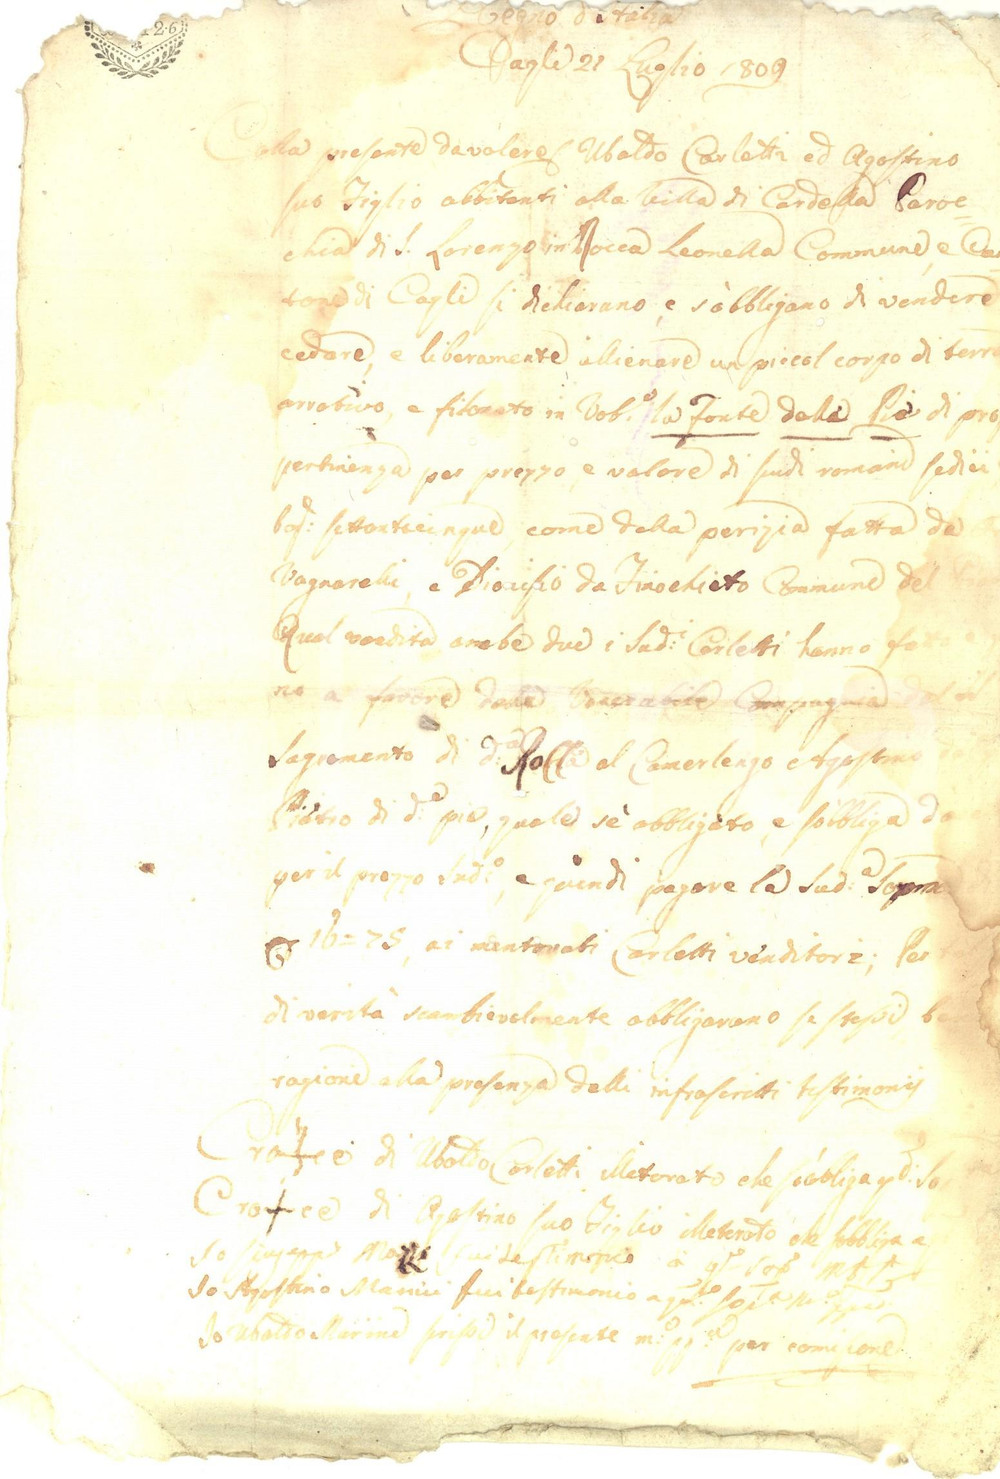 26
Regno d'Italia
Cagli 21 Luglio 1809
Colla presente da valere Ubaldo Carletti ed Agostino
suo Figlio abbitanti alla Villa di Cardella Paroc=
chia di S. Lorenzo in Rocca Leonella Commune, e Can
tone di Cagli si dichiarano, e s'obbligano di vendere
cedare, e liberamente allienare un piccol corpo di terre
arrativo, e filonato in Vob.o la Fonte della Pia di pro
pertinenza per prezzo, e valore di scudi romani sedici
boj: settantacinque, come della perizia fatta da
Vagnarelli, e Dionisio da Finochieto Commune del
Qual vendita ambe due i Sud.i Carletti hanno fatto e
no a favore della Venerabile Compagnia del
Sagramento di d.a Rocca al Camerlengo Agostino
Pietro di d.e pie, quale s'è obbligato, e s'obbliga
per il prezzo sud.o, e quindi pagare la sud.a Somma
16=75, ai mentovati Carletti venditori; Per
di verità scambievolmente obbligarano se stessi be
ragione alla presenza delli infrascritti testimonij
Cro+ce di Ubaldo Carletti illetorato che s'obbliga
Cro+ce di Agostino suo Figlio illeterato che s'obbliga a
Io Giuseppe fui testimonio a
Io Agostino Marini fui testimonio a
Io Ubaldo Marini scrissi il presente per comizione